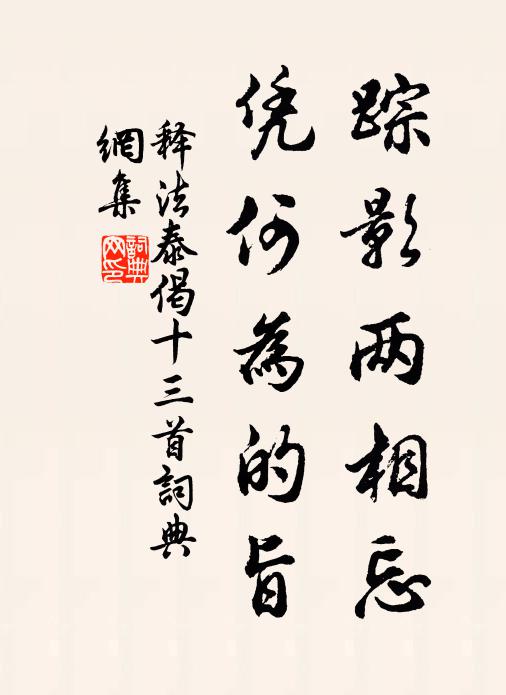 踪影两相忘
凭何為的旨
释法泰偈十三首詞典
網集
詞典
网印